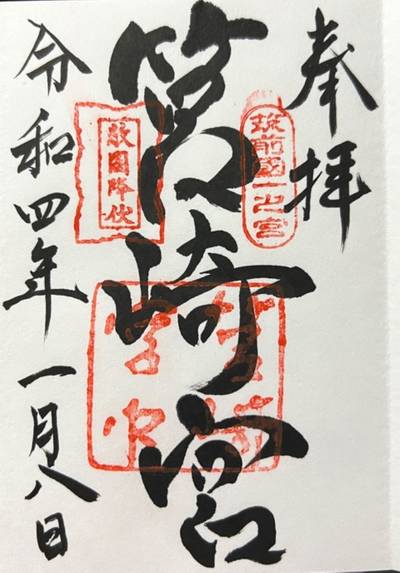 奉拝
筑前國一之宮
筥崎宮
敵國降伏
令和四年一月八日